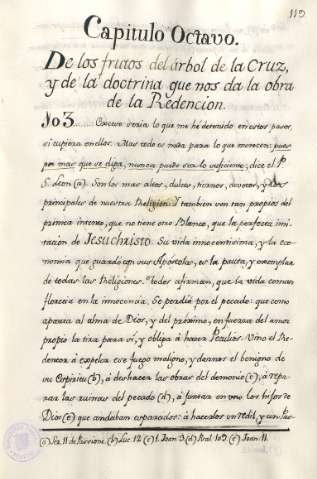 119
Capitulo Octavo.
De los frutos del arbol de la Cruz,
y de la doctrina que nos da la obra
de la Redencion.
103 Exceso seria lo que me hé detenido en estos pasos,
si cupiera en ellos. Mas todo es nada para lo que merecen; pues
por mas que se diga, nunca puede ser lo suficiente, dice el P.
S. Leon (a). Son los mas altos, dulces, tiernos, devotos, y los
principales de nuestra Religion. Y tambien son tan propios del
primer intento, que no tiene otro Blanco, que la perfecta imi-
tacion de Jesuchristo. Su vida inocentisima, y la eco-
nomia que guardó con sus Apóstoles, es la pauta, y exemplar
de todas las Religiones. Todos afianzan, que la vida comun
florecia en la inocencia. Se perdió por el pecado: que como
aparta al alma de Dios, y del próximo, en fuerza del amor
propio la tira para sí, y obliga á hacer Peculios. Vino el Re-
dentor á expeler ese fuego maligno, y derramar el benigno de
su Espiritu (b), á deshacer las obras del demonio (c), á repa-
rar las ruinas del pecado (d), á juntar en uno los hijos de
Dios (e) que andaban separados: á hacerlos un redil, y un Pas-
(a) Ser. 11 de Passione. (b) Luc. 12 (c) 1. Joan 3 (d) Psal. 109 (e) Joan 11.